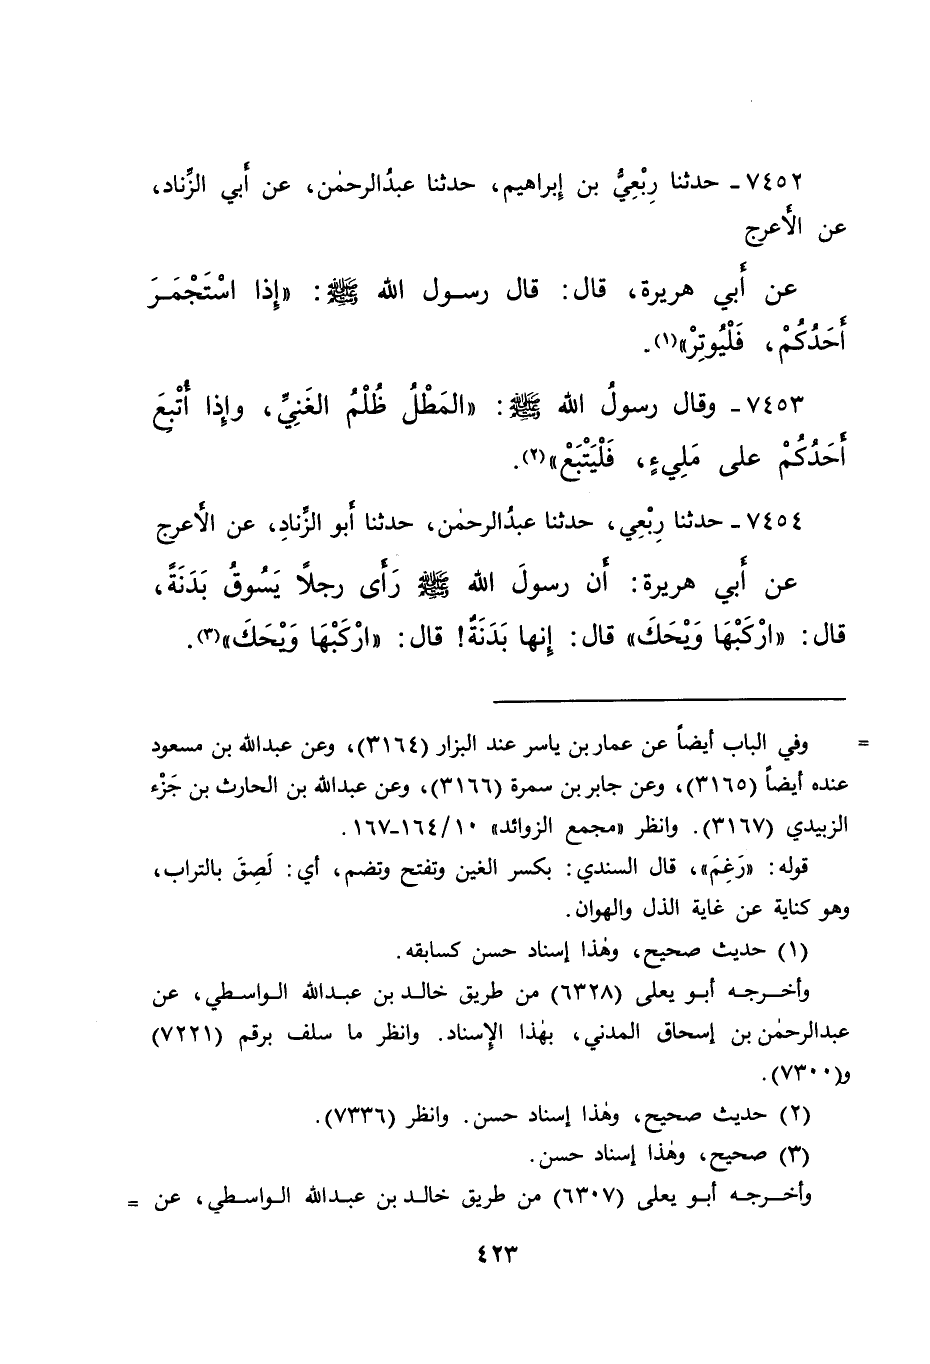 ٧٤٥٢ـ حدثنا رِبْعِيُّ بن إِبراهيم، حدثنا عبدُالرحمٰن، عن أَبي الزِّناد،
عن الأَعرج
عن أَبي هريرة، قال: قال رسول الله ﷺ: «إِذا اسْتَجْمَرَ
أَحَدُكُمْ، فَلْيُوتِرْ»(١).
٧٤٥٣ـ وقال رسولُ الله ﷺ: «المَطْلُ ظُلْمُ الغَنِيِّ، وإِذا أُتْبِعَ
أَحَدُكُمْ على مَلِيءٍ، فَلْيَتْبَعْ»(٢).
٧٤٥٤ـ حدثنا رِبْعِي، حدثنا عبدُالرحمٰن، حدثنا أَبو الزِّنادِ، عن الأَعرج
عن أَبي هريرة: أَن رسولَ الله ﷺ رَأَى رجلًا يَسُوقُ بَدَنَةً،
قال: «ارْكَبْهَا وَيْحَكَ» قال: إِنها بَدَنَةٌ! قال: «ارْكَبْهَا وَيْحَكَ»(٣).
= وفي الباب أيضاً عن عمار بن ياسر عند البزار (٣١٦٤)، وعن عبدالله بن مسعود
عنده أيضاً (٣١٦٥)، وعن جابر بن سمرة (٣١٦٦)، وعن عبدالله بن الحارث بن جَزْء
الزبيدي (٣١٦٧). وانظر «مجمع الزوائد» ١٠/١٦٤-١٦٧.
قوله: «رَغِمَ»، قال السندي: بكسر الغين وتفتح وتضم، أي: لَصِقَ بالتراب،
وهو كناية عن غاية الذل والهوان.
(١) حديث صحيح، وهٰذا إسناد حسن كسابقه.
وأخرجه أبو يعلى (٦٣٢٨) من طريق خالد بن عبدالله الواسطي، عن
عبدالرحمٰن بن إسحاق المدني، بهٰذا الإسناد. وانظر ما سلف برقم (٧٢٢١)
و(٧٣٠٠).
(٢) حديث صحيح، وهٰذا إسناد حسن. وانظر (٧٣٣٦).
(٣) صحيح، وهٰذا إسناد حسن.
وأخرجه أبو يعلى (٦٣٠٧) من طريق خالد بن عبدالله الواسطي، عن =
٤٢٣